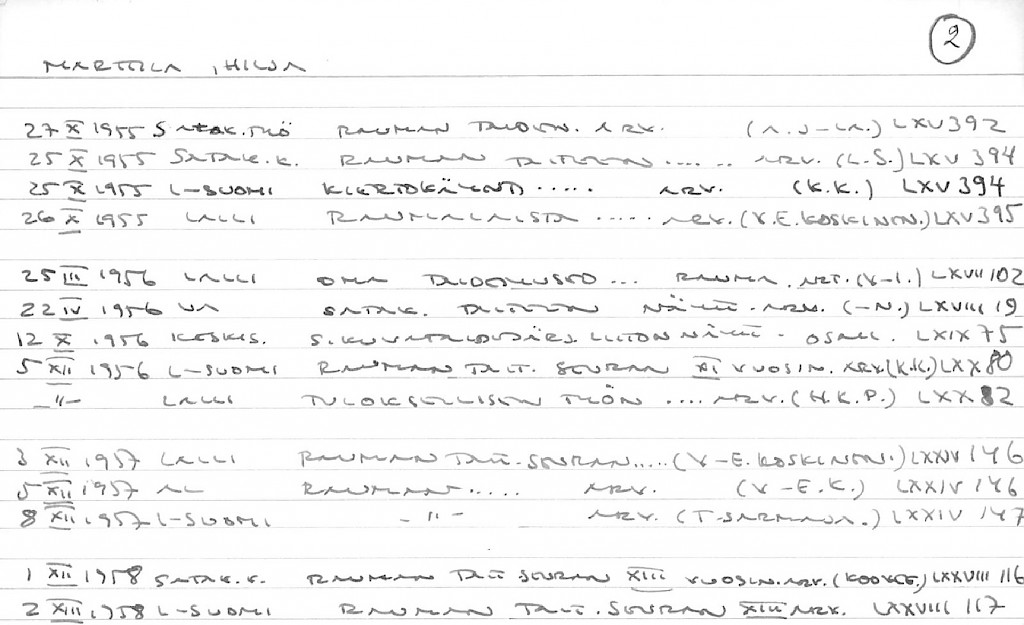 2
MARTTILA, HILJA
27 X 1955 SATAK.TYÖ RAUMAN TAIDEN. ARV. (A.J-LA.) LXV 392
25 X 1955 SATAK.K. RAUMAN ..... ARV. (L.S.) LXV 394
25 X 1955 L-SUOMI KIERTOKÄYND ..... ARV. (K.K.) LXV 394
26 X 1955 LALLI RAUMALAISTA ..... ARV. (V.E.KOSKINEN.) LXV 395
25 III 1956 LALLI OMA ... RAUMA. ART. (V-I.) LXVII 102
22 IV 1956 UA SATAK. NÄYTT. ARV. (-N.) LXVIII 19
12 X 1956 KESKIS. S.KUVATAIDEJÄRJ. LIITON NÄYTT. - OSALL. LXIX 75
5 XII 1956 L-SUOMI RAUMAN TAIT. SEURAN XI VUOSIN. ARV. (K.K.) LXX 80
-"- LALLI TULOKSELLISEN TYÖN .... ARV. (H.K.P.) LXX 82
3 XII 1957 LALLI RAUMAN TAIT. SEURAN ..... (V-E.KOSKINEN.) LXXIV 146
5 XII 1957 AL RAUMAN ..... ARV. (V-E.K.) LXXIV 146
8 XII 1957 L-SUOMI -"- ARV. (T-SARMAJA.) LXXIV 147
1 XII 1958 SATAK.K. RAUMAN TAIT SEURAN XIII VUOSIN.ARV. LXXVIII 116
2 XIII 1958 L-SUOMI RAUMAN TAIT. SEURAN XIII ARV. LXXVIII 117